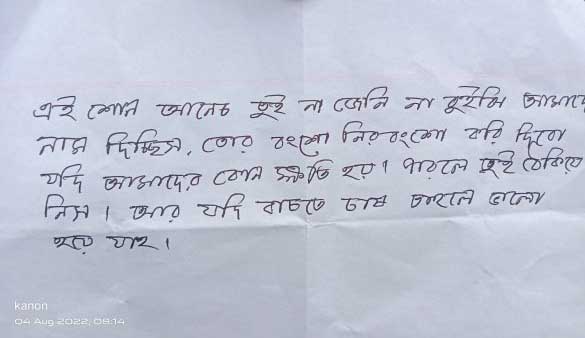 এই শোন আনেচ তুই না জেনি না তুইমি আমাদে
নাম দিচ্ছিস, তোর বংশো নিরবংশো করি দিবো
যদি আমাদের কোন ক্ষতি হয়। পারলে তুই ঠেকিয়ে
নিস। আর যদি বাচতে চাস তাহলে ভালো
হয়ে যাহ।
kanon
04 Aug 2022, 08:14